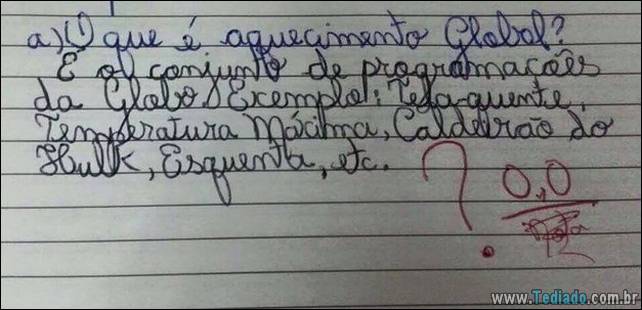 a) O que é aquecimento Global?
É o conjunto de programações
da Globo. Exemplo: Tela quente,
Temperatura Máxima, Caldeirão do
Hulk, Esquenta, etc.
? 0,0
Nota
www.Tediado.com.br